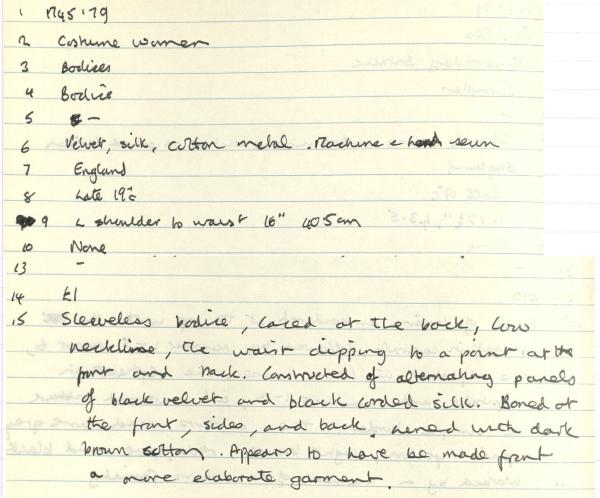 1 M45.79
2 Costume women
3 Bodices
4 Bodice
5 -
6 Velvet, silk, cotton metal. Machine & hand sewn
7 England
8 Late 19c
9 L shoulder to waist 16" 40.5cm
10 None
13 -
14 £1
15 Sleeveless bodice, laced at the back, low
neckline, the waist dipping to a point at the
front and back. Constructed of alternating panels
of black velvet and black corded silk. Boned at
the front, sides, and back. Lined with dark
brown cotton. Appears to have be made from
a more elaborate garment.